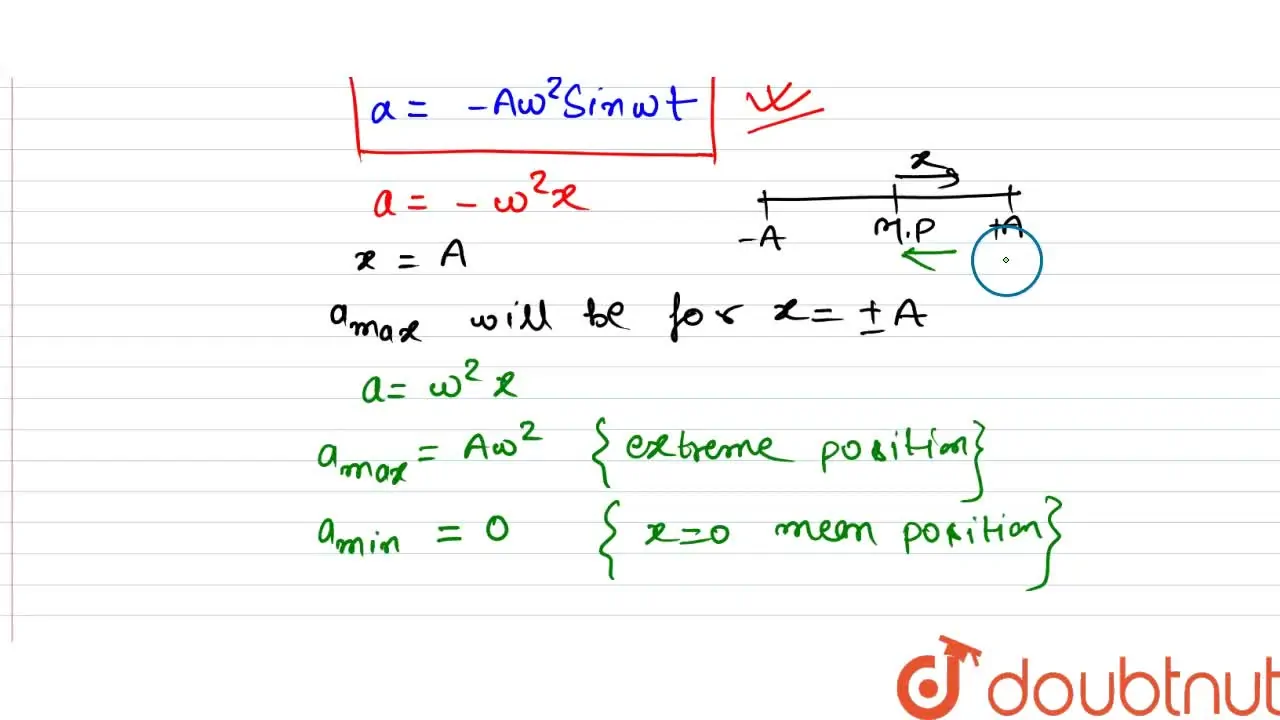 a = -Aω²Sinωt
x
a = -ω²x
-A M.P +A
x = A
a_max will be for x = ±A
a = ω²x
a_max = Aω² {extreme position}
a_min = 0 {x=0 mean position}
doubtnut